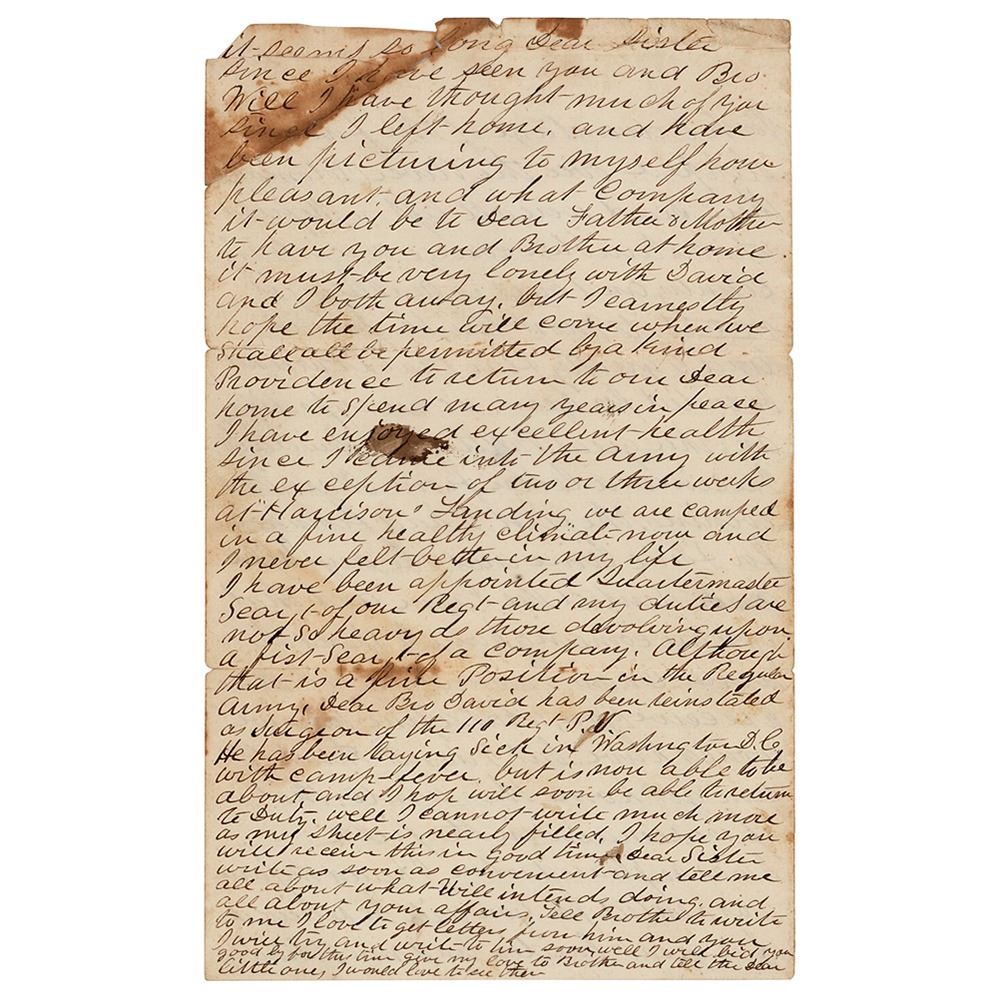 it seems so long Dear Sister
since I have seen you and Bro
Will I have thought much of you
since I left home, and have
been picturing to myself how
pleasant and what Company
it would be to Dear Father & Mother
to have you and Brother at home.
it must be very lonely with David
and I both away, but I earnestly
hope the time will come when we
shall all be permitted by a kind
Providence to return to our Dear
home to spend many years in peace
I have enjoyed excellent health
since I came into the army with
the exception of two or three weeks
at Harrison's Landing we are camped
in a fine healthy climate now and
I never felt better in my life
I have been appointed Quartermaster
Sear,t of our Regt and my duties are
not so heavy as those devolving upon
a first Sear,t of a company. Although
that is a fine Position in the Regular
Army, Dear Bro David has been reinstated
as Surgeon of the 110 Regt P.V
He has been laying Sick in Washington D.C.
with camp fever. but is now able to be
about and I hop will soon be able to return
to Duty. well I cannot write much more
as my sheet is nearly filled, I hope you
will receive this in good time, Dear Sister
write as soon as convenient and tell me
all about what Will intends doing, and
all about your affairs, Tell Brother to write
to me I love to get letters from him and you
I will try and write to him soon, well I will bid you
good by for this time give my love to Brother and tell the Dear
little one, I would love to see them